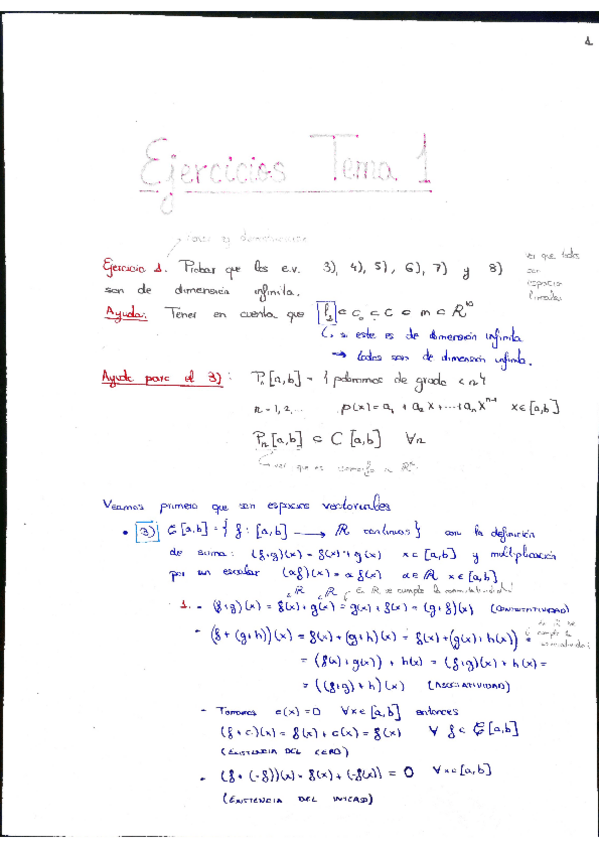 1
Ejercicios Tema 1
Ejercicio 1. Probar que los e.v. 3), 4), 5), 6), 7) y 8)
ver que todos son espacios lineales
son de dimensión infinita.
Ayuda: Tener en cuenta que l₂ ⊂ c₀ ⊂ C ⊂ m ⊂ ℝ^ℕ
si este es de dimensión infinita
→ todos son de dimensión infinita.
Ayuda para el 3): Pₙ[a,b] = {polinomios de grado < n}
n = 1, 2, ... p(x) = a₁ + a₂x + ... + aₙxⁿ⁻¹ x ∈ [a,b]
Pₙ[a,b] ⊂ C[a,b] ∀n
ver que es isomorfo a ℝⁿ
Veamos primero que son espacios vectoriales
• 3) C[a,b] = {f: [a,b] → ℝ continuas} con la definición
de suma: (f+g)(x) = f(x) + g(x) x ∈ [a,b] y multiplicación
por un escalar (αf)(x) = αf(x) α ∈ ℝ, x ∈ [a,b]
∈ℝ ∈ℝ En ℝ se cumple la conmutatividad
1. - (f+g)(x) = f(x) + g(x) = g(x) + f(x) = (g+f)(x) (CONMUTATIVIDAD)
- (f+(g+h))(x) = f(x) + (g+h)(x) = f(x) + (g(x)+h(x)) =
en ℝ se cumple la asociatividad
= (f(x)+g(x)) + h(x) = (f+g)(x) + h(x) =
= ((f+g)+h)(x) (ASOCIATIVIDAD)
- Tomamos e(x) = 0 ∀x ∈ [a,b] entonces
(f+e)(x) = f(x) + e(x) = f(x) ∀ f ∈ C[a,b]
(EXISTENCIA DEL CERO)
- (f+(-f))(x) = f(x) + (-f(x)) = 0 ∀x ∈ [a,b]
(EXISTENCIA DEL INVERSO)